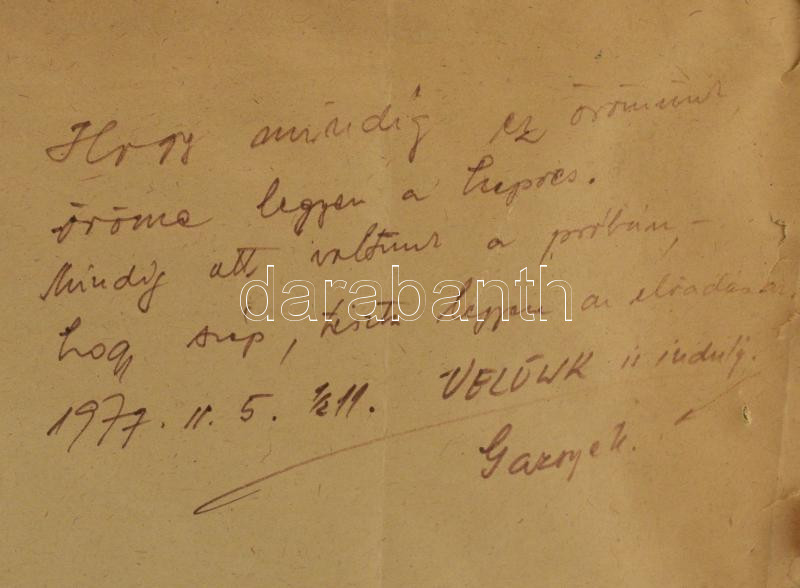 Hogy mindig ez örömünk
öröme legyen a lepres.
Mindig ott voltunk a próbán,-
hogy szép, tiszta legyen az előadás
1977. II. 5. 1/2 11. VELÜNK is indulj.
darabanth